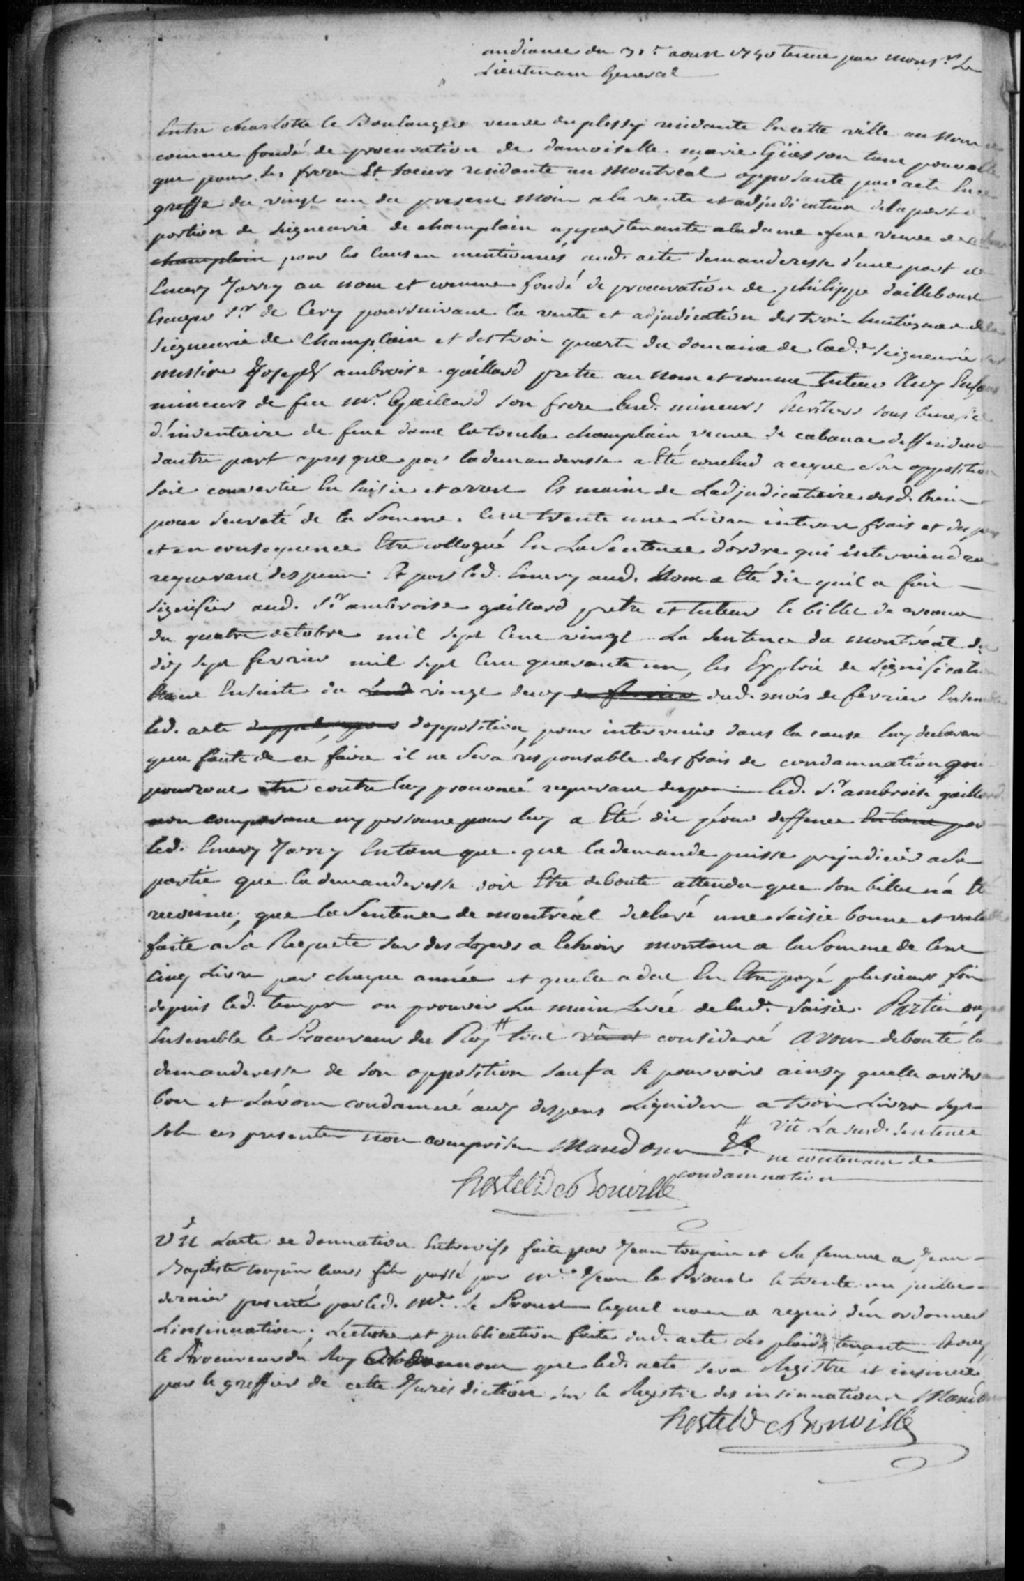 audiance du 31e aoust 1740 tenue par monsr. Le
Lieutenant General
Entre charlotte le Boulanger veuve duplessy residante En cette ville au nom
comme fondé de procuration de damoiselle marie tant pour elle
que pour ses freres Et soeurs residante au montreal opposante par acte En ce
greffe du vingt un du present mois a la vente et adjudication de la part et
portion de seigneurie de champlain appartenante a la dame veuve de
champlain pour les causes mentionnés aud. acte demanderesse d'une part et
Emery Jarry au nom et comme fondé de procuration de philippe daillebout
Ecuyer sr. de Cery poursuivant la vente et adjudication des trois huitiesmes de la
seigneurie de champlain et des trois quarts du domaine de lad. seigneurie
messire Joseph ambroise gaillard pretre au nom et comme tuteur aux Enfans
mineurs de feu mr. Gaillard son frere lesd. mineurs heritiers sous benefice
d'inventaire de feue dame la touche champlain veuve de cabanac deffendeur
dautre part apres que par la demanderesse a Eté conclud a ce que son opposition
soit convertie En saisie et arrest Es mains de Ladjudicataire desd. biens
pour sureté de la somme Cent trente une Livres interest frais et
et en consequence Etre colloqué En La Sentence d'ordre qui interviendra
requerant depens. Et par led. Emery aud. Nom a Eté dit quil a fait
signifier aud. sr. ambroise gaillard pretre et tuteur le billet de
du quatre octobre mil sept Cent vingt La sentence du montréal du
dix sept fevrier mil sept Cent quarante un, les Exploit de signification
Ensuite du vingt deux dud. mois de fevrier Ensemble
led. acte d'opposition pour intervenir dans la cause luy declarant
que faute de ce faire il ne sera responsable des frais de condamnation que
pouront etre contre luy prononcé requerant depens led. Sr. ambroise gaillard
non comparant ny personne pour luy a Eté dit pour deffence par
led. Emery Jarry En tant que que la demande puisse prejudicier a sa
partie que la demanderesse doit Etre deboute attendu que son billet n'a Eté
reconnu, que la Sentence de montréal declaré une saisie bonne et valable
faite a sa Requete sur des Loyers a Echoir montant a la somme de Cent
cinq Livres par chaque année et quelle a dut En Etre payé plusieurs fois
depuis led. temps ou prouver La main Levée de lad. saisie. Partie ouye
Ensemble le Procureur du Roy # tout consideré avons debouté la
demanderesse de son opposition sauf a se pourvoir ainsy quelle avisera
bon et Lavons condamné aux depens Liquidés a trois Livres sept
sols ces presentes non comprise Mandons &c.
# vû La susd. sentence
ne contenant de
condamnation
hertel De Rouville
Vû Lacte de donnation Entrevifs faite par Jean toupin et sa femme a Jean
Baptiste toupin leurs fils passé par me. Jean le Proust le trente un juillet
dernier presenté par led. me. Le Proust lequel nous a requis d'en ordonner
Linsinuation; Lecture et publication faite dud. acte Les plaids tenant
le Procureur du Roy ordonnons que led. acte sera Registré et insinué
par le greffier de cette Jurisdiction sur le Registre des insinuations Mandons
hertel De Rouville